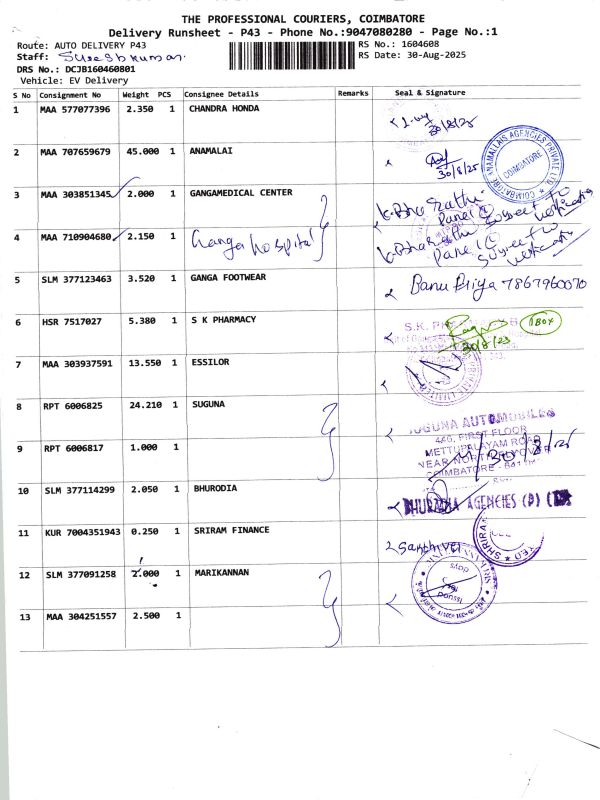 THE PROFESSIONAL COURIERS, COIMBATORE
Delivery Runsheet - P43 - Phone No.:9047080280 - Page No.:1
Route: AUTO DELIVERY P43
RS No.: 1604608
Staff: Sureshkumar.
RS Date: 30-Aug-2025
DRS No.: DCJB160460801
Vehicle: EV Delivery
S No Consignment No Weight PCS Consignee Details Remarks Seal & Signature
1 MAA 577077396 2.350 1 CHANDRA HONDA
30/8/25
2 MAA 707659679 45.000 1 ANAMALAI
30/8/25
COIMBATORE ANAMALLAIS AGENCIES PRIVATE LTD.
COIMBATORE
3 MAA 303851345 2.000 1 GANGAMEDICAL CENTER
K-Bharathi
Panel C
Subject to
Verification
4 MAA 710904680 2.150 1 Ganga hospital
K-Bharathi
Panel C
Subject to
Verification
5 SLM 377123463 3.520 1 GANGA FOOTWEAR
Banu Priya 7867960070
6 HSR 7517027 5.380 1 S K PHARMACY
S.K. 1 BOX
30/8/25
7 MAA 303937591 13.550 1 ESSILOR
8 RPT 6006825 24.210 1 SUGUNA
SUGUNA AUTOMOBILES
440, FIRST FLOOR
METTUPALAYAM ROAD
NEAR NORTH FLYOVER
COIMBATORE - 641
30/8/25
9 RPT 6006817 1.000 1
10 SLM 377114299 2.050 1 BHURODIA
BHURADIA AGENCIES (P) LTD
11 KUR 7004351943 0.250 1 SRIRAM FINANCE
Santhivel
SHRIRAM
12 SLM 377091258 2.000 1 MARIKANNAN
13 MAA 304251557 2.500 1